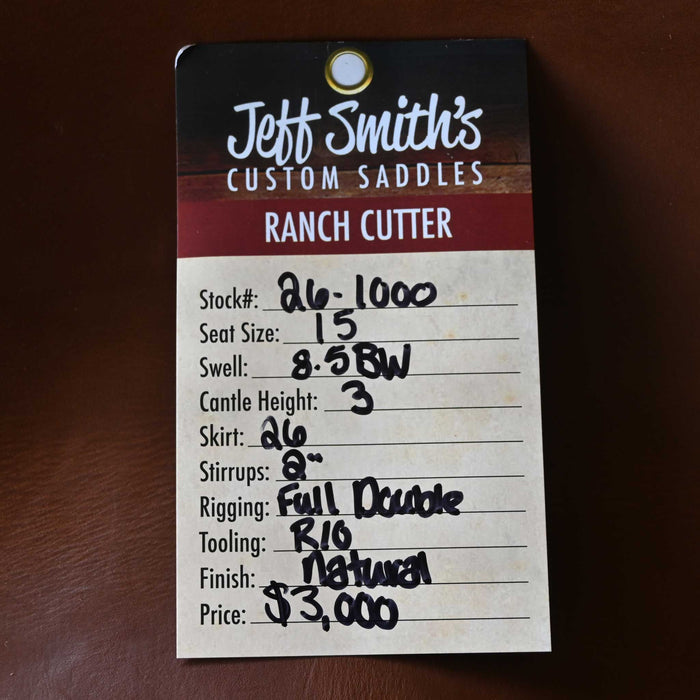 Jeff Smith's
CUSTOM SADDLES
RANCH CUTTER
Stock#: 26-1000
Seat Size: 15
Swell: 8.5 BW
Cantle Height: 3
Skirt: 26
Stirrups: 2"
Rigging: Full Double
Tooling: R10
Finish: natural
Price: $3,000